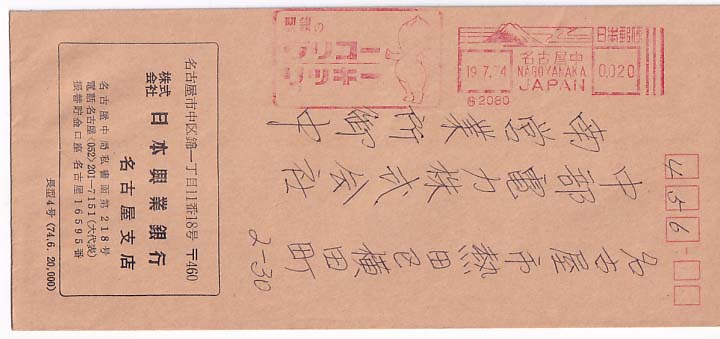 456
名古屋市熱田区横田町
2-30
中部電力株式会社
南営業所御中
日本郵便
名古屋中
NAGOYANAKA
JAPAN
19.7.74
0020
2080
リッキー
名古屋市中区錦一丁目11番18号 〒460
株式会社 日本興業銀行
名古屋支店
名古屋中局私書函第218号
電話名古屋〈052〉201-7151(大代表)
振替貯金口座 名古屋16595番
長型4号 (74.6. 20,000)